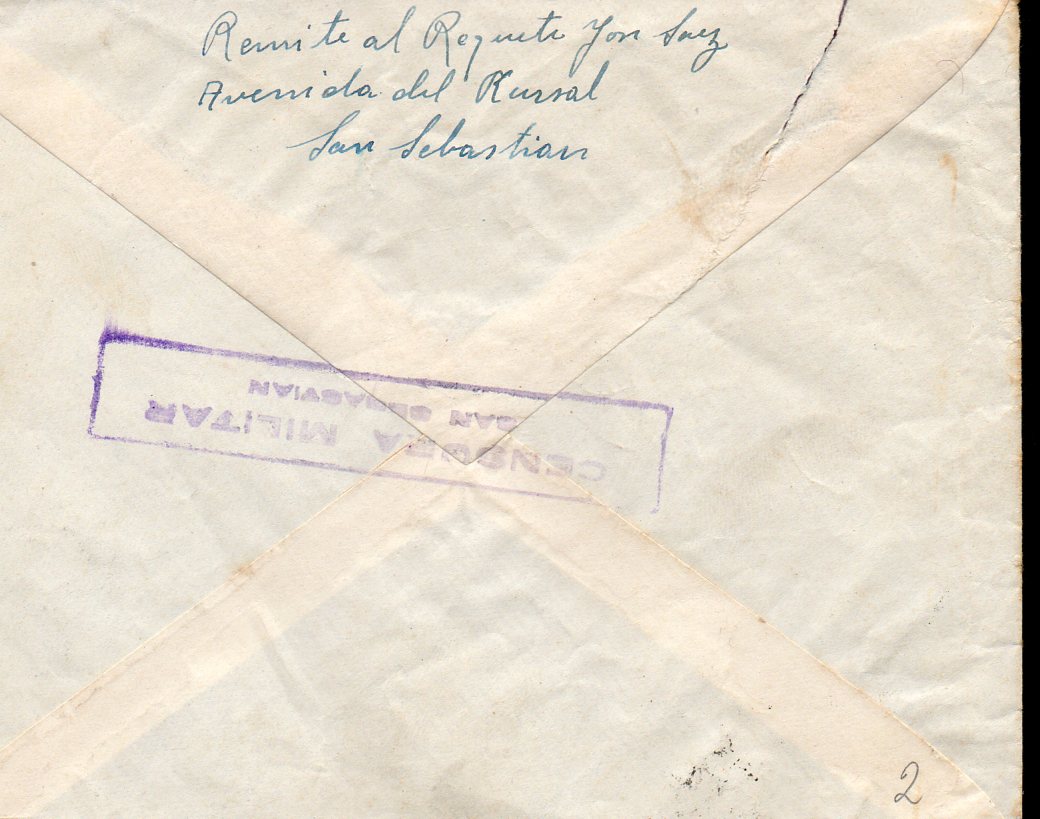 Remite al Requeté Jon Saez
Avenida del Kursal
San Sebastian
CENSURA MILITAR
SAN SEBASTIAN
2